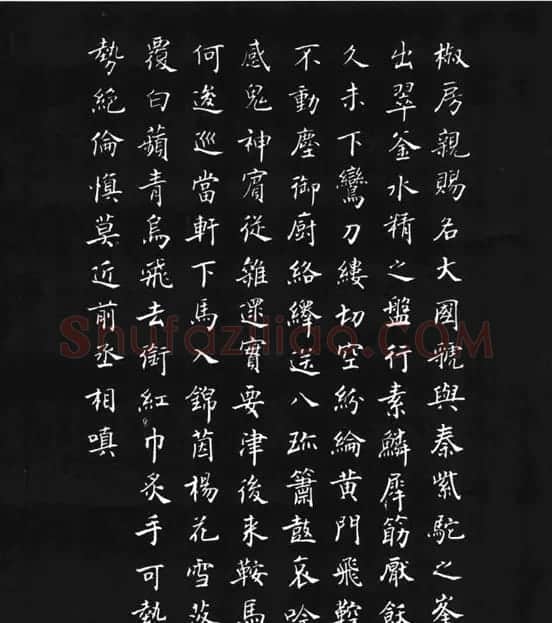 椒房親賜名大國虢與秦紫駝之峯
出翠釜水精之盤行素鱗犀筯厭飫
久未下鸞刀縷切空紛綸黃門飛鞚
不動塵御厨絡繹送八珎簫鼓哀吟
感鬼神賓從雜遝實要津後来鞍馬
何逡巡當軒下馬入錦茵楊花雪落
覆白蘋青鳥飛去銜紅巾炙手可熱
勢絶倫慎莫近前丞相嗔
Shufaziliao.COM